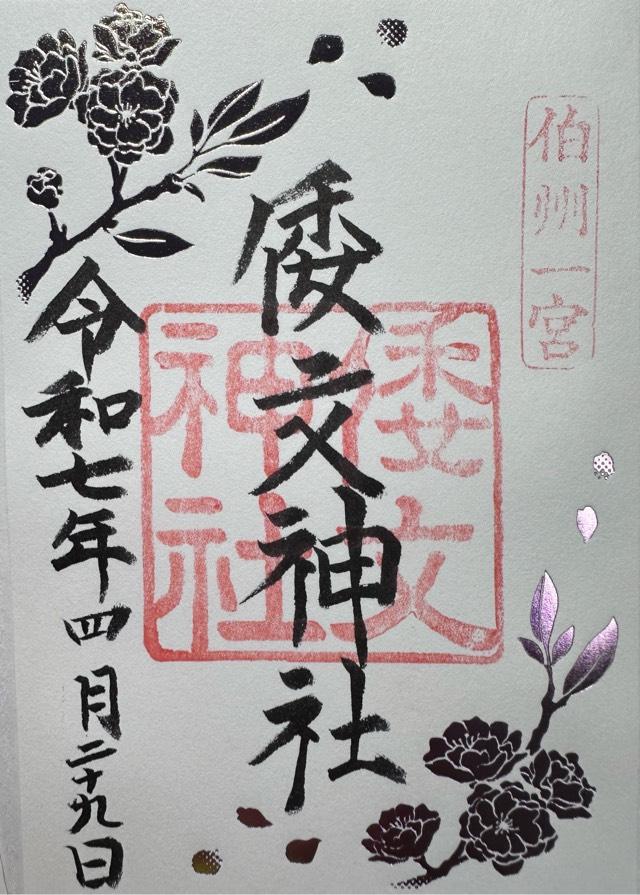 伯州一宮
倭文神社
倭文神社
令和七年四月二十九日